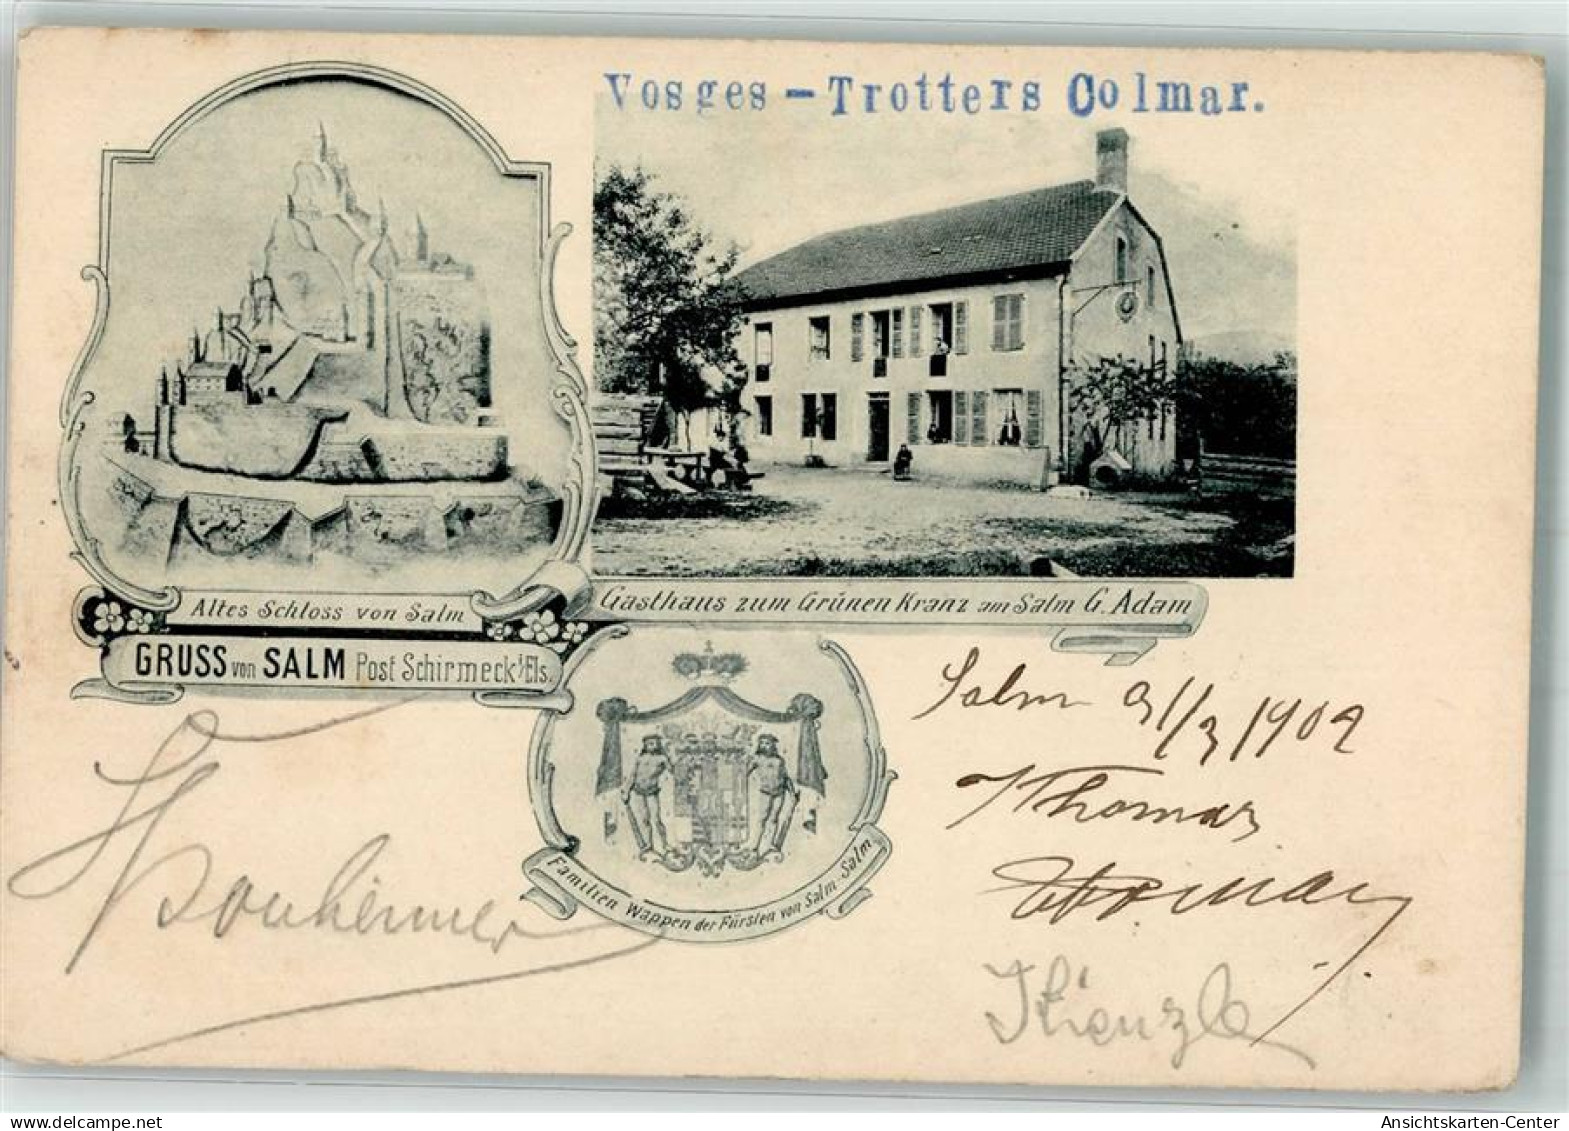 Vosges - Trotters Colmar.
Altes Schloss von Salm
Gasthaus zum Grünen Kranz am Salm G. Adam
GRUSS von SALM Post Schirmeck i/Els.
Familien Wappen der Fürsten von Salm-Salm
Salm 31/3/1902
Thomas
Kienzle
AnsichtsKarten-Center